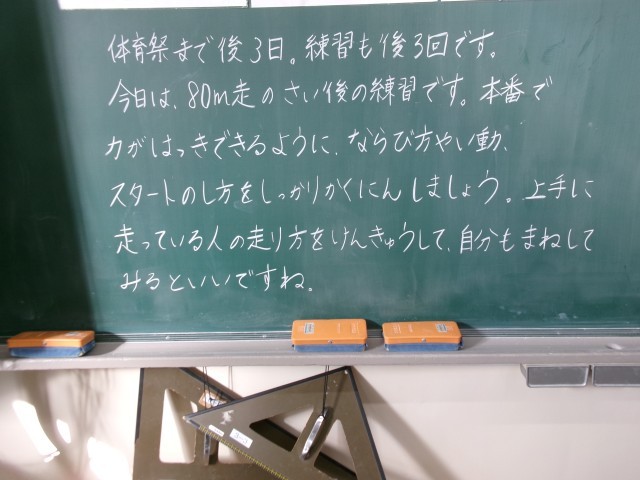 体育祭まで後3日。練習も後3回です。
今日は、80m走のさい後の練習です。本番で
力がはっきできるように、ならび方やい動、
スタートのし方をしっかりかくにんしましょう。上手に
走っている人の走り方をけんきゅうして、自分もまねして
みるといいですね。